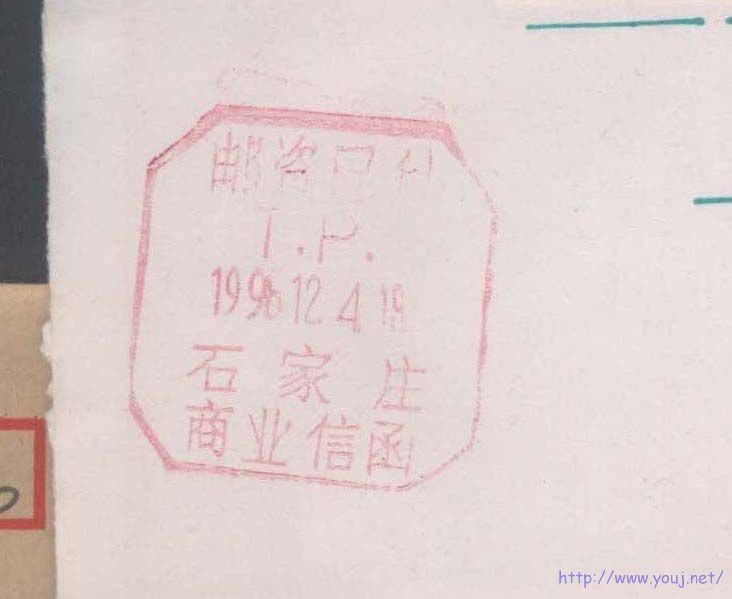 邮资已付
T.P.
1996 12 4 19
石家庄
商业信函
http://www.youj.net/